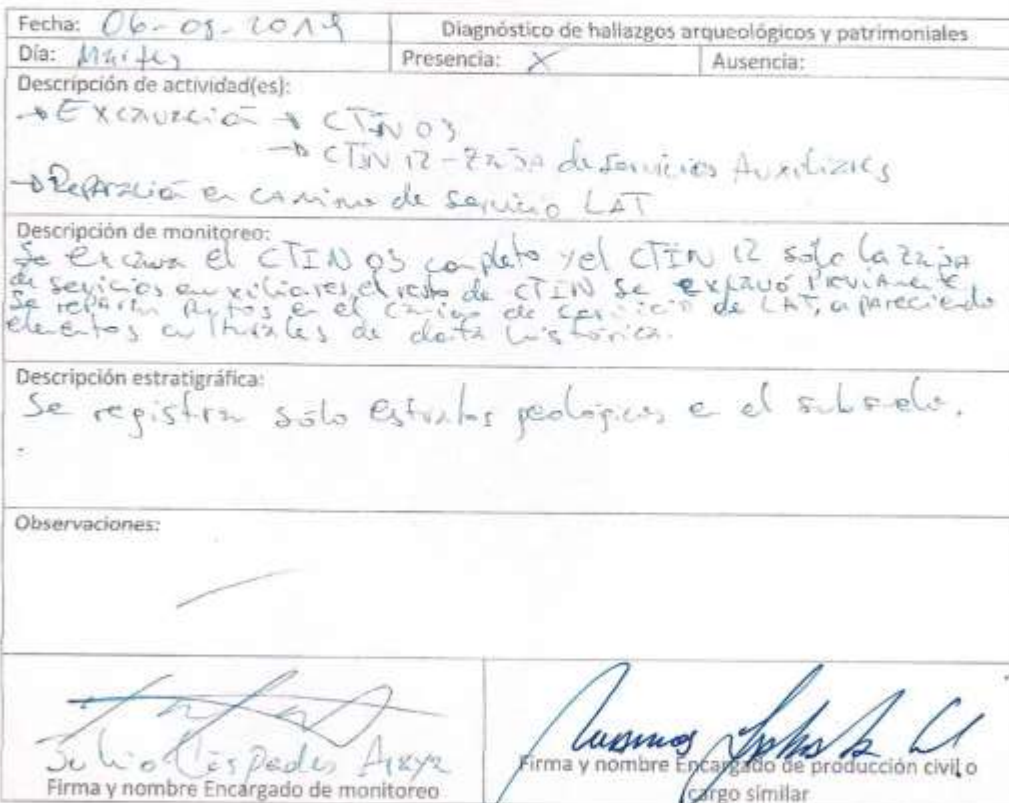 Fecha: 06-08-2019
Diagnóstico de hallazgos arqueológicos y patrimoniales
Día: Martes
Presencia: X
Ausencia:
Descripción de actividad(es):
→ Excavación → CTIN 03
→ CTIN 12 - Zanja de Servicios Auxiliares
→ Reparación en camino de servicio LAT
Descripción de monitoreo:
Se excava el CTIN 03 completo y el CTIN 12 solo la zanja
de servicios auxiliares, el resto de CTIN se excavó previamente
Se reparan puntos en el camino de servicio de LAT, apareciendo
elementos culturales de data histórica.
Descripción estratigráfica:
Se registran sólo estratos geológicos en el subsuelo.
Observaciones:
Julio Céspedes Araya
Firma y nombre Encargado de monitoreo
Firma y nombre Encargado de producción civil o
cargo similar